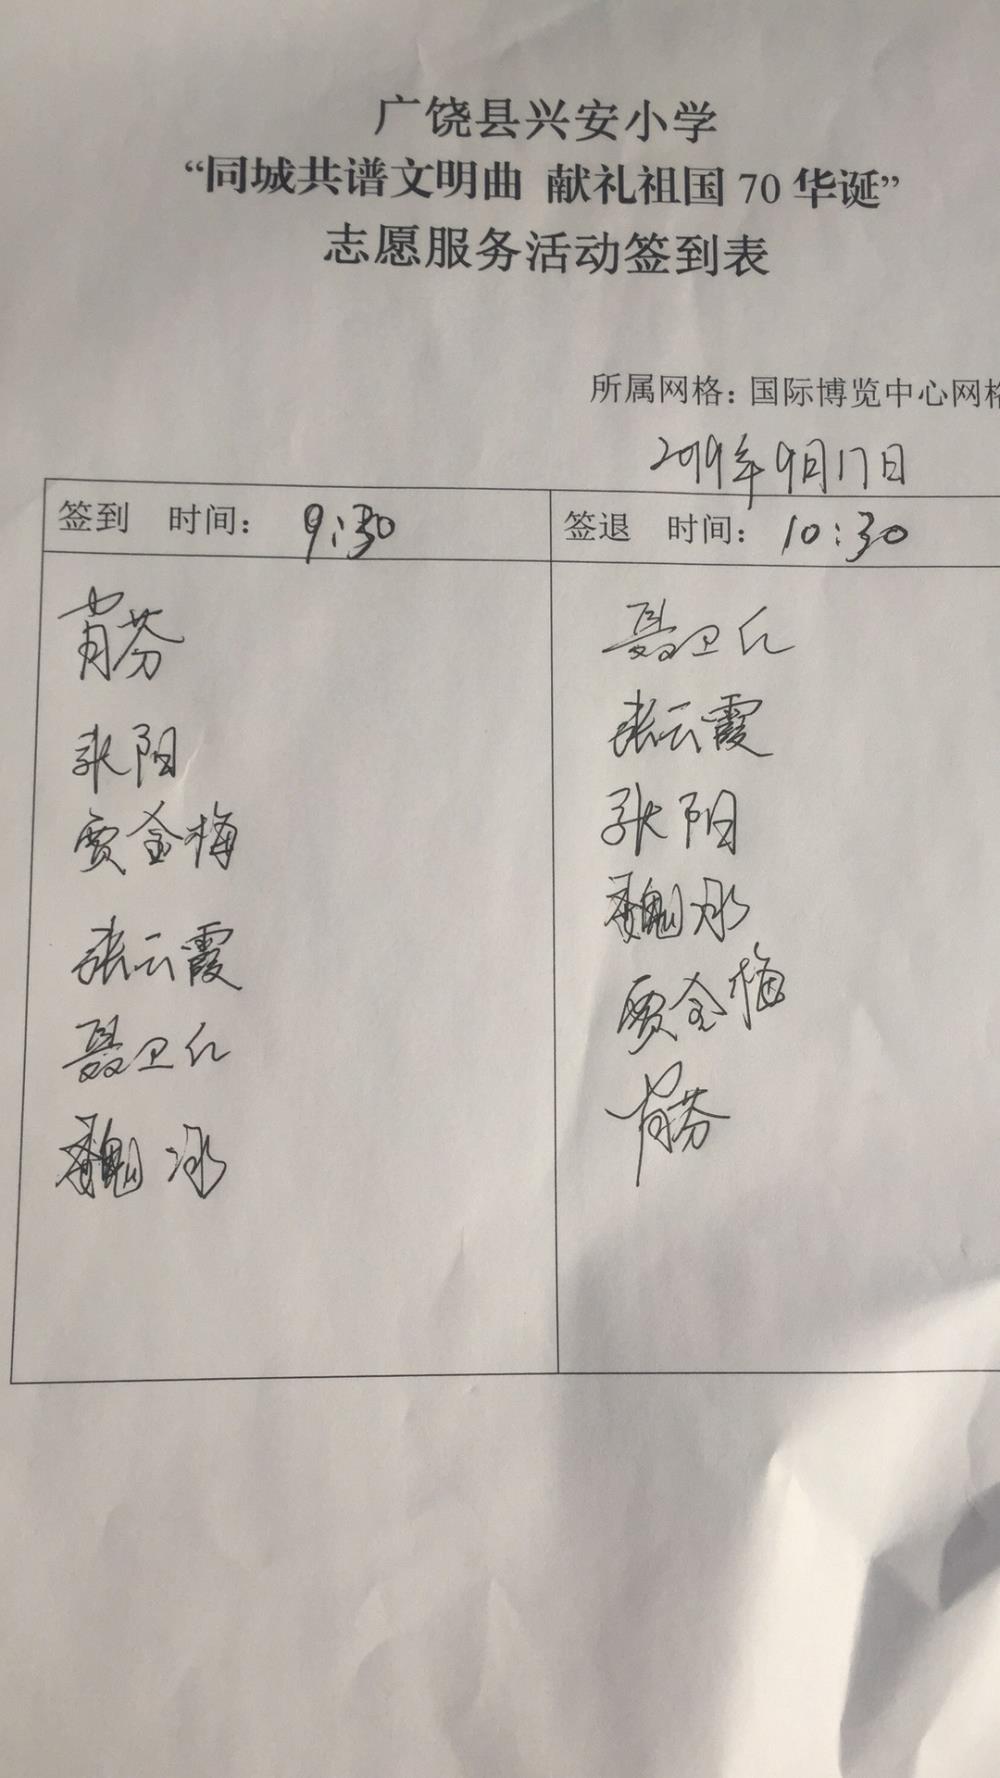 广饶县兴安小学
“同城共谱文明曲 献礼祖国 70 华诞”
志愿服务活动签到表
所属网格：国际博览中心网格
2019年9月17日
签到 时间： 9:30
签退 时间： 10:30
肖芬
张阳
贾金梅
张云霞
聂卫仁
魏冰
聂卫仁
张云霞
张阳
魏冰
贾金梅
肖芬